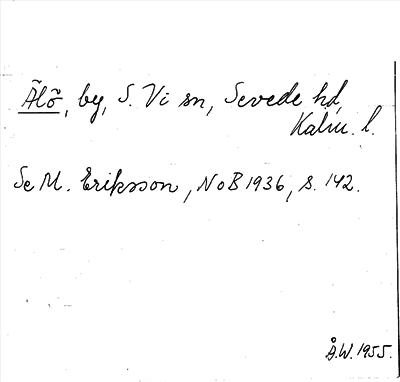 Älö, by, S. Vi sn, Sevede hd,
Kalm. l.
Se M. Eriksson, NoB 1936, s. 142.
Å.W. 1955.